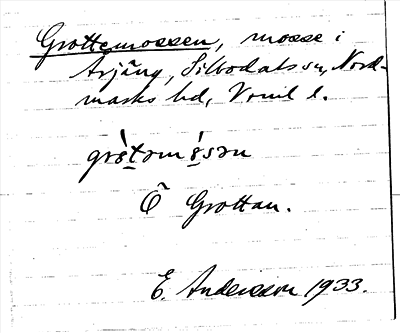 Grottemossen, mosse i
Årjäng, Silbodals sn, Nord-
marks hd, Vrml l.
grò̱təmò̱sən
Ö Grottan.
E. Andersson 1933.